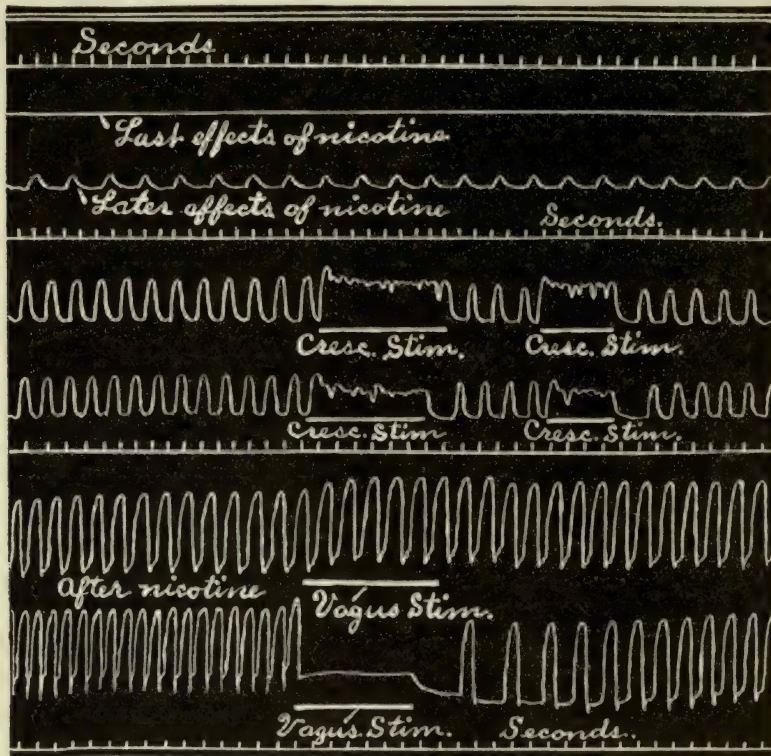 Seconds
Last effects of nicotine
Later effects of nicotine Seconds.
Cresc. Stim. Cresc. Stim.
Cresc. Stim Cresc. Stim.
After nicotine
Vagus Stim.
Vagus. Stim. Seconds.